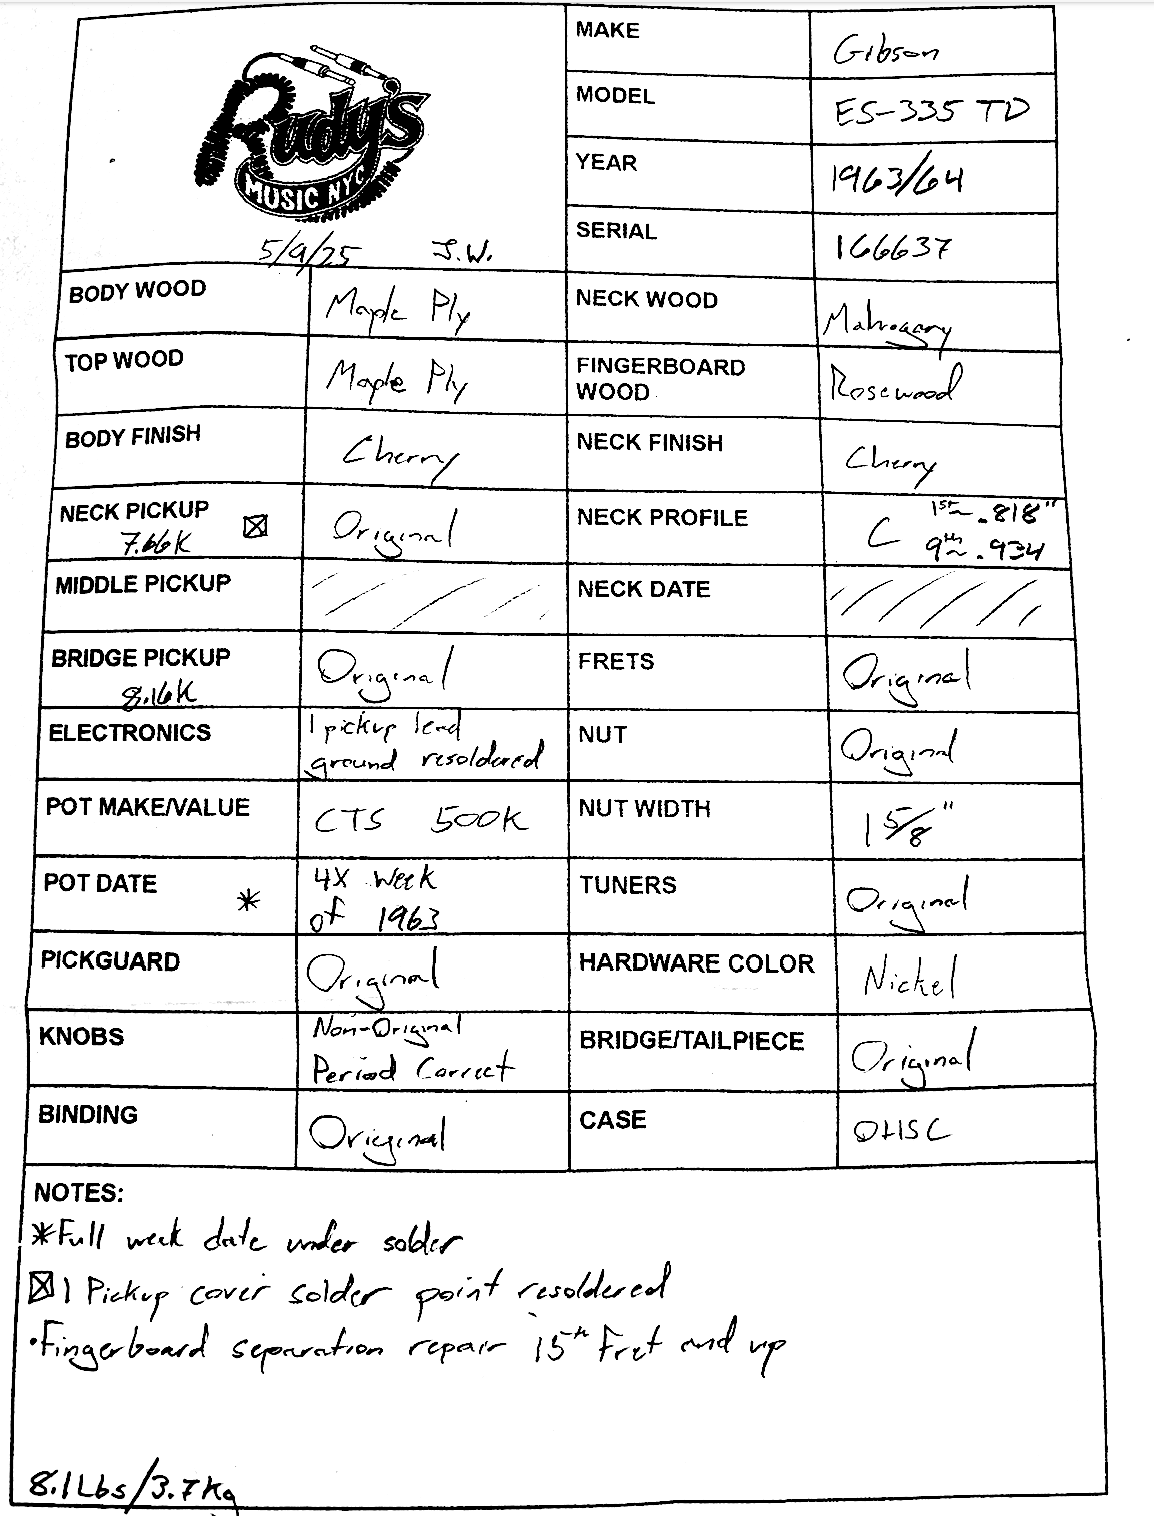 Rudy's
MUSIC NYC
5/9/25 J.W.
MAKE Gibson
MODEL ES-335 TD
YEAR 1963/64
SERIAL 166637
BODY WOOD Maple Ply
NECK WOOD Mahogany
TOP WOOD Maple Ply
FINGERBOARD
WOOD Rosewood
BODY FINISH Cherry
NECK FINISH Cherry
NECK PICKUP
7.66K ☒ Original
NECK PROFILE C 1st~ .818"
9th~ .934
MIDDLE PICKUP
NECK DATE
BRIDGE PICKUP
8.16K Original
FRETS Original
ELECTRONICS 1 pickup lead
ground resoldered
NUT Original
POT MAKE/VALUE CTS 500K
NUT WIDTH 1 5/8"
POT DATE * 4X week
of 1963
TUNERS Original
PICKGUARD Original
HARDWARE COLOR Nickel
KNOBS Non-Original
Period Correct
BRIDGE/TAILPIECE Original
BINDING Original
CASE OHSC
NOTES:
*Full week date under solder
☒ 1 Pickup cover solder point resoldered
•Fingerboard separation repair 15th Fret and up
8.1Lbs/3.7Kg